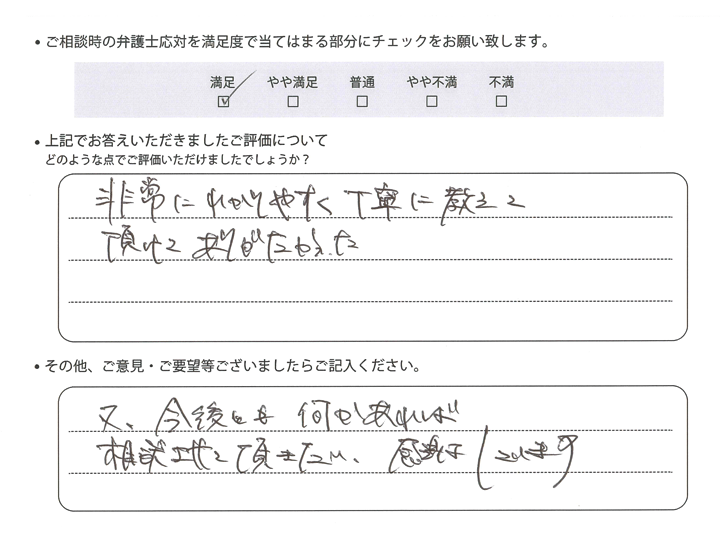 • ご相談時の弁護士応対を満足度で当てはまる部分にチェックをお願い致します。
満足 やや満足 普通 やや不満 不満
• 上記でお答えいただきましたご評価について
どのような点でご評価いただけましたでしょうか？
非常にわかりやすく丁寧に教えて
頂けて ありがたかった
• その他、ご意見・ご要望等ございましたらご記入ください。
又、今後とも 何かあれば
相談させて頂きたい、感謝しています